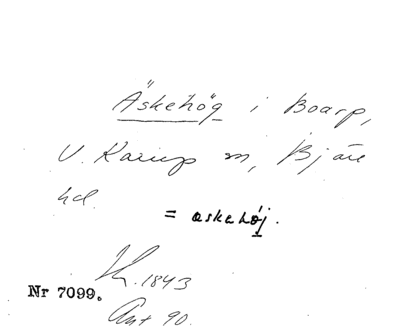 Äskehög i Boarp,
V. Karup sn, Bjäre
hd.
= askehøj.
1843
Nr 7099.
Ant 90.